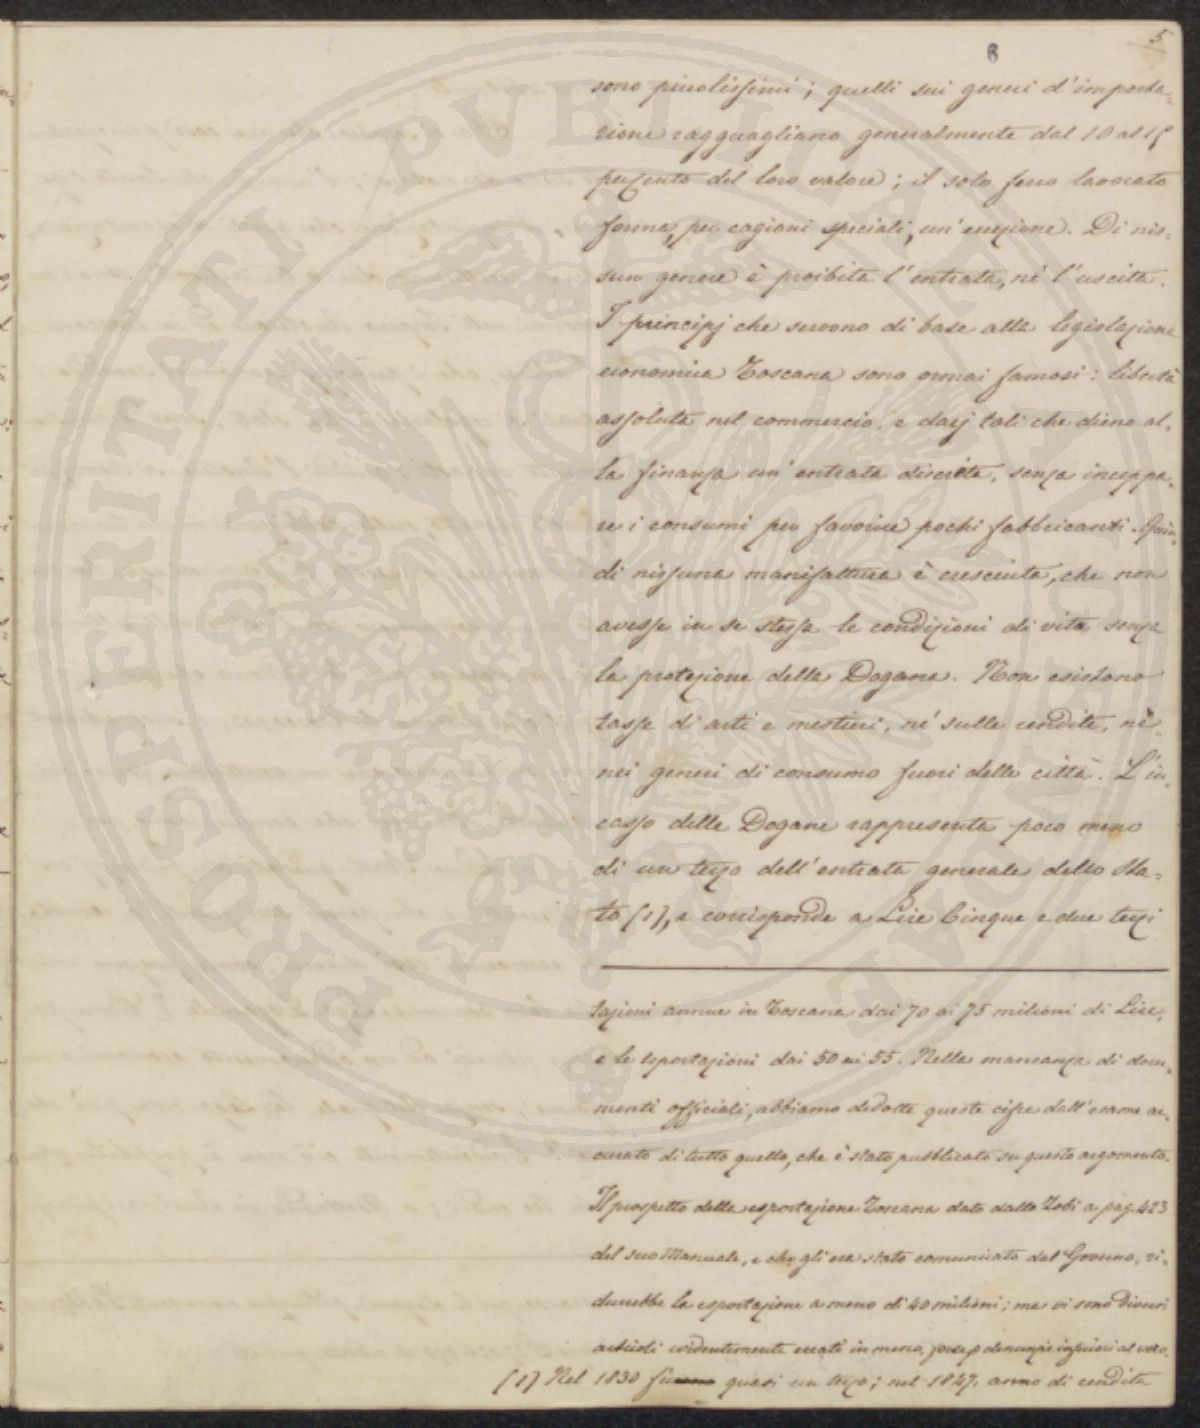 5
6
sono piccolissimi; quelli sui generi d'importa=
zione ragguagliano generalmente dal 10 al 15
percento del loro valore; il solo ferro lavorato
forma, per cagioni speciali, un'eccezione. Di nis=
sun genere è proibita l'entrata, nè l'uscita.
I principj che servono di base alla legislazione
economica Toscana sono ormai famosi: libertà
assoluta nel commercio, e dazj tali che dieno al=
la finanza un'entrata discreta, senza inceppa=
re i consumi per favorire pochi fabbricanti. Quin=
di nissuna manifattura è cresciuta, che non
avesse in se stessa le condizioni di vita senza
la protezione della Dogana. Non esistono
tasse di arti e mestieri, nè sulle rendite, nè
nei generi di consumo fuori delle città. L'in=
casso delle Dogane rappresenta poco meno
di un terzo dell'entrata generale dello Sta=
to (1), e corrisponde a Lire Cinque e due terzi
tazioni annue in Toscana dai 70 ai 75 milioni di Lire,
e le esportazioni dai 50 ai 55. Nella mancanza di docu=
menti officiali, abbiamo dedotte queste cifre dall'esame ac=
curato di tutto quello, che è stato pubblicato su questo argomento.
Il prospetto della esportazione Toscana dato dallo Zobi a pag. 423
del suo Manuale, e che gli era stato comunicato dal Governo, ri=
durrebbe la esportazione a meno di 40 milioni; ma vi sono diversi
articoli evidentemente errati in meno, forse p denunzie inferiori al vero.
(1) Nel 1830 fu quasi un terzo; nel 1847. anno di rendita
PROSPERITATI PVBLICAE